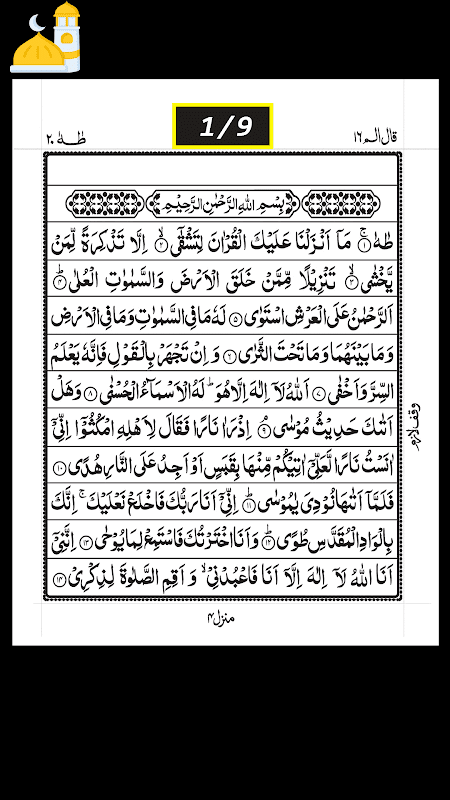 1/9
قال الم ١٦
طٰهٰ ٢٠
بِسْمِ اللهِ الرَّحْمٰنِ الرَّحِيْمِ
طٰهٰ ۚ﴿١﴾ مَاۤ اَنْزَلْنَا عَلَيْكَ الْقُرْاٰنَ لِتَشْقٰٓى ۙ﴿٢﴾ اِلَّا تَذْكِرَةً لِّمَنْ
يَّخْشٰى ۙ﴿٣﴾ تَنْزِيْلًا مِّمَّنْ خَلَقَ الْاَرْضَ وَالسَّمٰوٰتِ الْعُلٰى ؕ﴿٤﴾
اَلرَّحْمٰنُ عَلَى الْعَرْشِ اسْتَوٰى ﴿٥﴾ لَهٗ مَا فِى السَّمٰوٰتِ وَمَا فِى الْاَرْضِ
وَمَا بَيْنَهُمَا وَمَا تَحْتَ الثَّرٰى ﴿٦﴾ وَاِنْ تَجْهَرْ بِالْقَوْلِ فَاِنَّهٗ يَعْلَمُ
السِّرَّ وَاَخْفٰى ﴿٧﴾ اَللهُ لَاۤ اِلٰهَ اِلَّا هُوَ ؕ لَهُ الْاَسْمَآءُ الْحُسْنٰى ﴿٨﴾ وَهَلْ
اَتٰىكَ حَدِيْثُ مُوْسٰى ۘ﴿٩﴾ اِذْ رَاٰ نَارًا فَقَالَ لِاَهْلِهِ امْكُثُوْۤا اِنِّىْۤ
اٰنَسْتُ نَارًا لَّعَلِّىْۤ اٰتِيْكُمْ مِّنْهَا بِقَبَسٍ اَوْ اَجِدُ عَلَى النَّارِ هُدًى ﴿١٠﴾
فَلَمَّاۤ اَتٰىهَا نُوْدِىَ يٰمُوْسٰى ؕ﴿١١﴾ اِنِّىْۤ اَنَا رَبُّكَ فَاخْلَعْ نَعْلَيْكَ ۚ اِنَّكَ
بِالْوَادِ الْمُقَدَّسِ طُوًى ؕ﴿١٢﴾ وَاَنَا اخْتَرْتُكَ فَاسْتَمِعْ لِمَا يُوْحٰى ﴿١٣﴾ اِنَّنِىْۤ
اَنَا اللهُ لَاۤ اِلٰهَ اِلَّاۤ اَنَا فَاعْبُدْنِىْ ۙ وَاَقِمِ الصَّلٰوةَ لِذِكْرِىْ ﴿١٤﴾
وقف لازم
منزل ٤